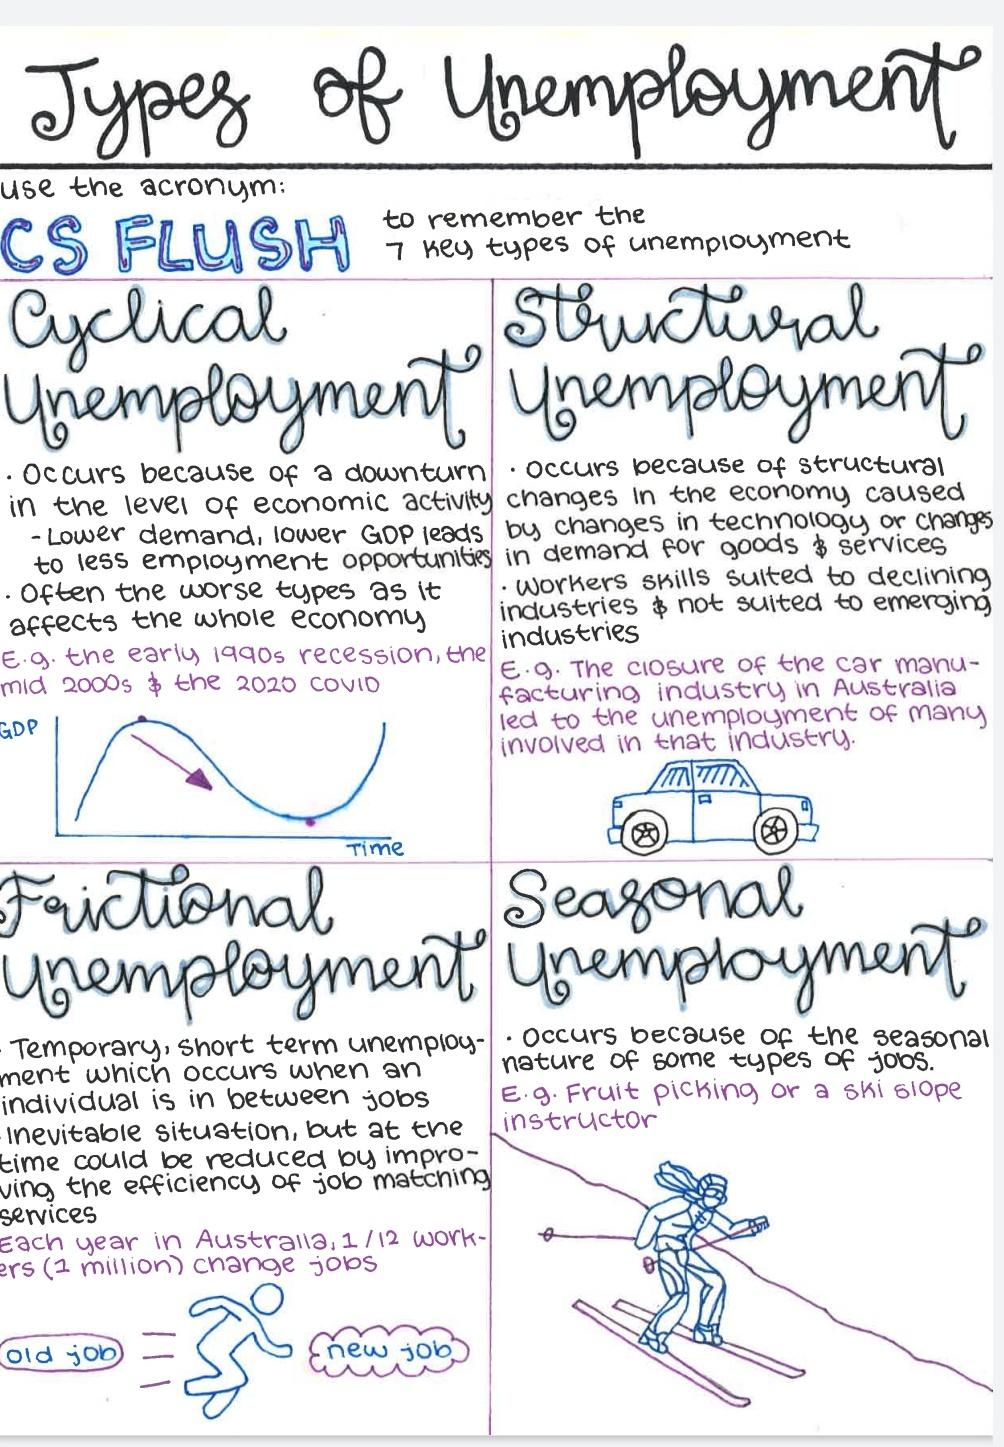 Types of Unemployment
use the acronym:
CS FLUSH
to remember the
7 key types of unemployment
Cyclical
Unemployment
· Occurs because of a downturn
in the level of economic activity
- Lower demand, lower GDP leads
to less employment opportunities
· Often the worse types as it
affects the whole economy
E.g. the early 1990s recession, the
mid 2000s & the 2020 COVID
GDP
Time
Structural
Unemployment
· Occurs because of structural
changes in the economy caused
by changes in technology or changes
in demand for goods & services
· Workers skills suited to declining
industries & not suited to emerging
industries
E.g. The closure of the car manu-
facturing industry in Australia
led to the unemployment of many
involved in that industry.
Frictional
Unemployment
· Temporary, short term unemploy-
ment which occurs when an
individual is in between jobs
· Inevitable situation, but at the
time could be reduced by impro-
ving the efficiency of job matching
services
Each year in Australia, 1/12 work-
ers (1 million) change jobs
old job
new job
Seasonal
Unemployment
· Occurs because of the seasonal
nature of some types of jobs.
E.g. Fruit picking or a ski slope
instructor